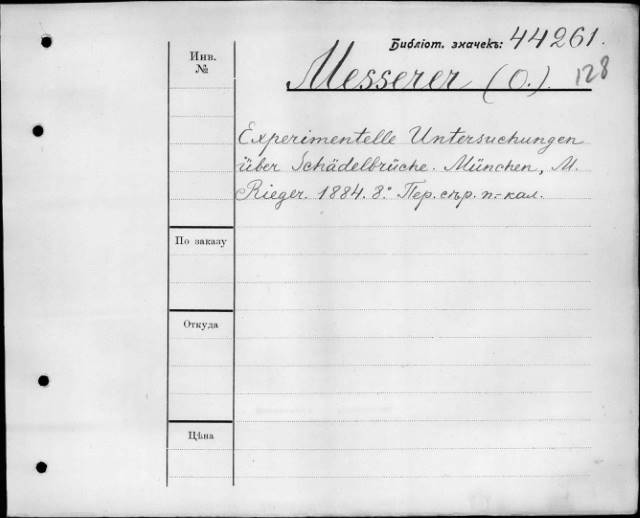 Библіот. значекъ: 44261.
Инв. №
Messerer (O.). 128
Experimentelle Untersuchungen
über Schädelbrüche. München, M.
Rieger. 1884. 8º. Пер. сѣр. п.-кал.
По заказу
Откуда
Цѣна